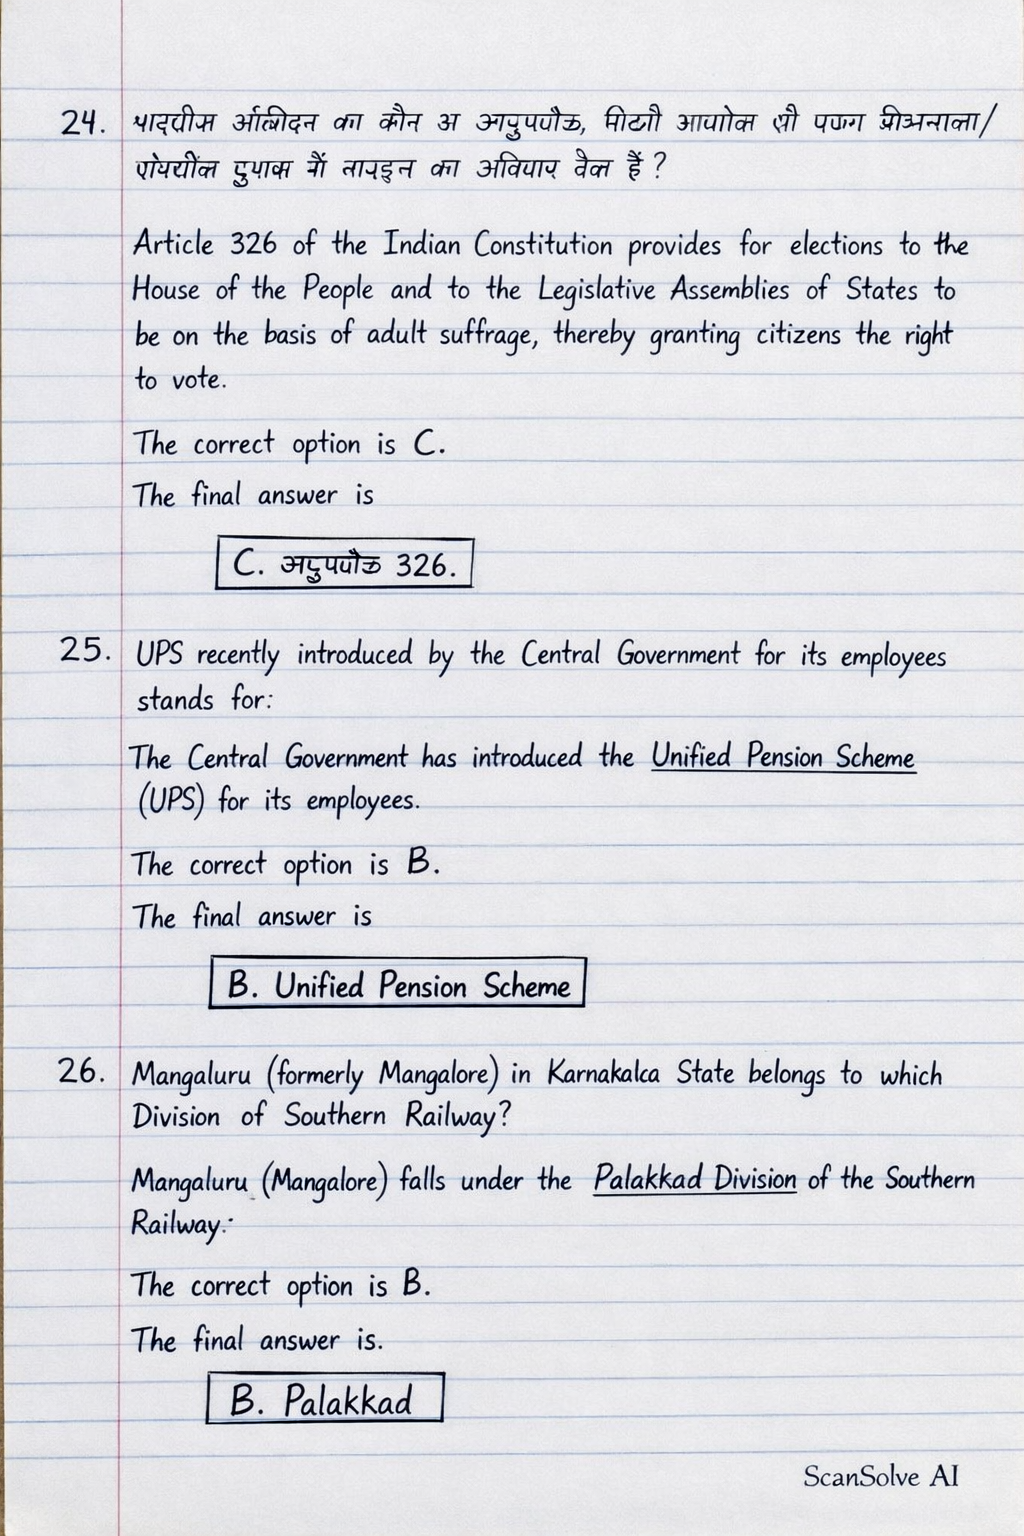 24.
का कौन
का हैं ?
Article 326 of the Indian Constitution provides for elections to the
House of the People and to the Legislative Assemblies of States to
be on the basis of adult suffrage, thereby granting citizens the right
to vote.
The correct option is C.
The final answer is
C. 326.
25. UPS recently introduced by the Central Government for its employees
stands for:
The Central Government has introduced the Unified Pension Scheme
(UPS) for its employees.
The correct option is B.
The final answer is
B. Unified Pension Scheme
26. Mangaluru (formerly Mangalore) in Karnakalca State belongs to which
Division of Southern Railway?
Mangaluru (Mangalore) falls under the Palakkad Division of the Southern
Railway.
The correct option is B.
The final answer is.
B. Palakkad
ScanSolve AI